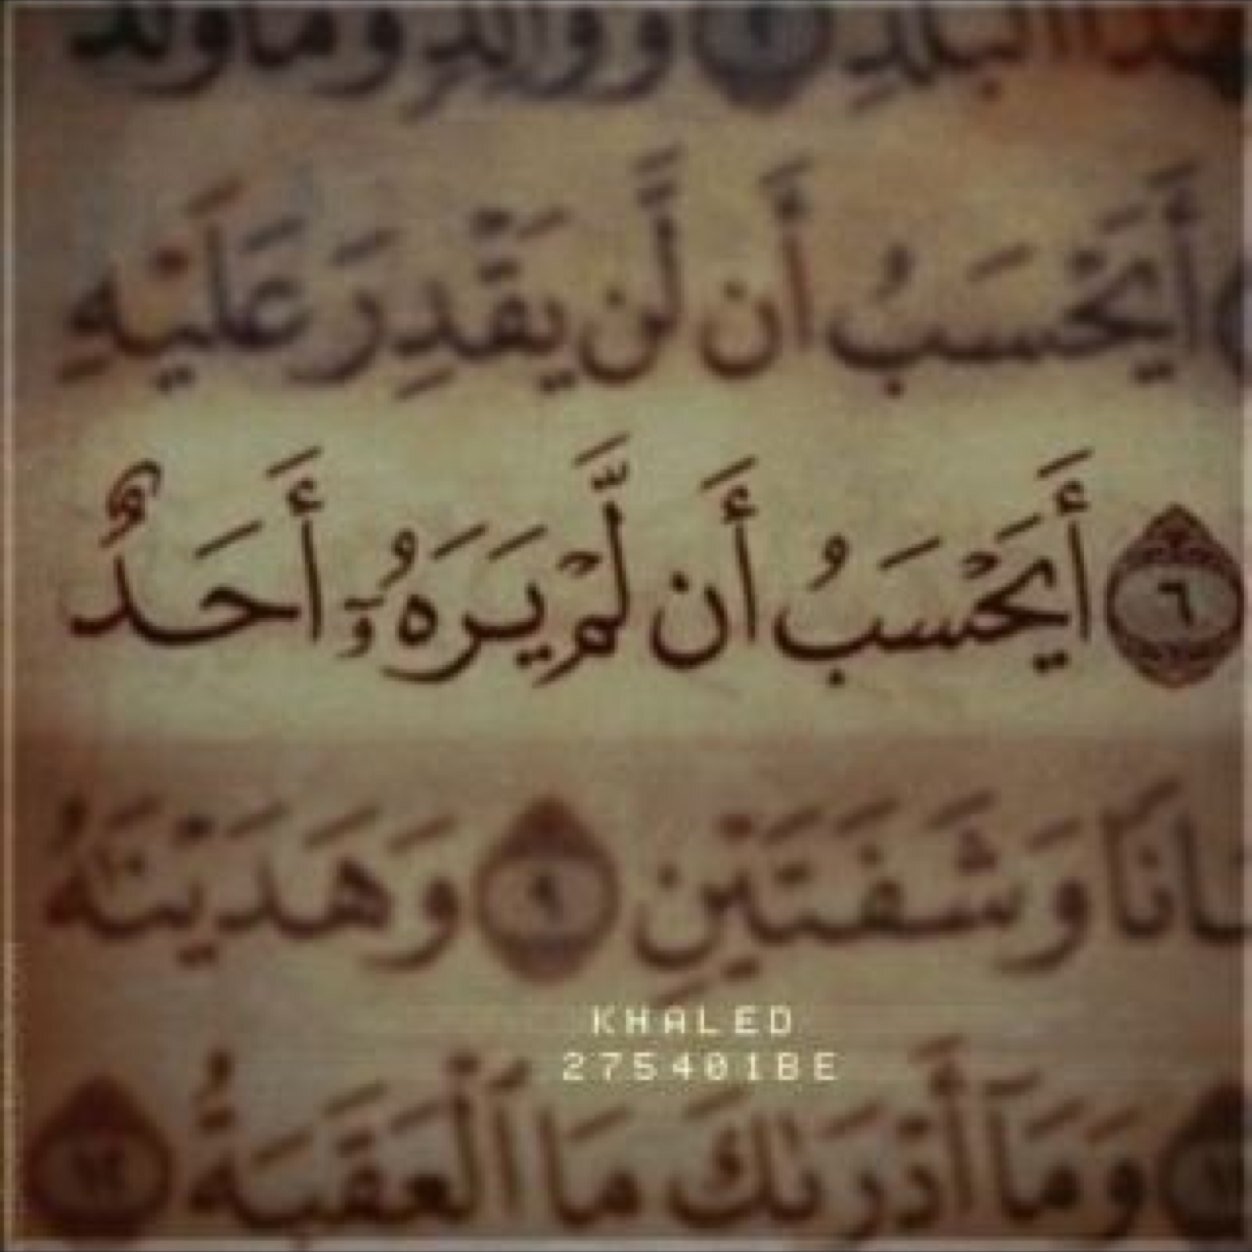 هَـٰذَا ٱلْبَلَدِ ٢ وَوَالِدٍ وَمَا وَلَدَ
أَيَحْسَبُ أَن لَّن يَقْدِرَ عَلَيْهِ
٦ أَيَحْسَبُ أَن لَّمْ يَرَهُۥٓ أَحَدٌ
وَشَفَتَيْنِ ٩ وَهَدَيْنَـٰهُ
KHALED
275401BE
وَمَآ أَدْرَىٰكَ مَا ٱلْعَقَبَةُ ١٢